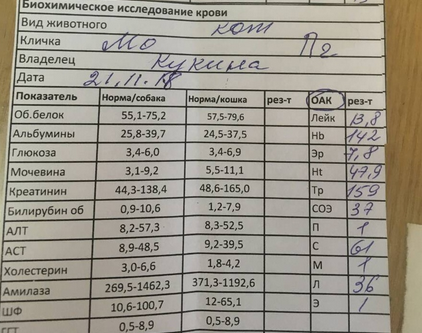 Биохимическое исследование крови
Вид животного кот
Кличка Мо
Владелец Кукина
Дата 21.11.18
Показатель Норма/собака Норма/кошка рез-т ОАК рез-т
Об.белок 55,1-75,2 57,5-79,6 Лейк 13,8
Альбумины 25,8-39,7 24,5-37,5 Hb 142
Глюкоза 3,4-6,0 3,4-6,9 Эр 7,8
Мочевина 3,1-9,2 5,5-11,1 Ht 47,9
Креатинин 44,3-138,4 48,6-165,0 Тр 159
Билирубин об 0,9-10,6 1,2-7,9 СОЭ 37
АЛТ 8,2-57,3 8,3-52,5 П 1
АСТ 8,9-48,5 9,2-39,5 С 61
Холестерин 3,0-6,6 1,8-4,2 М 1
Амилаза 269,5-1462,3 371,3-1192,6 Л 36
ШФ 10,6-100,7 12-65,1 Э 1
ГГТ 0,5-8,9 0,5-8,9